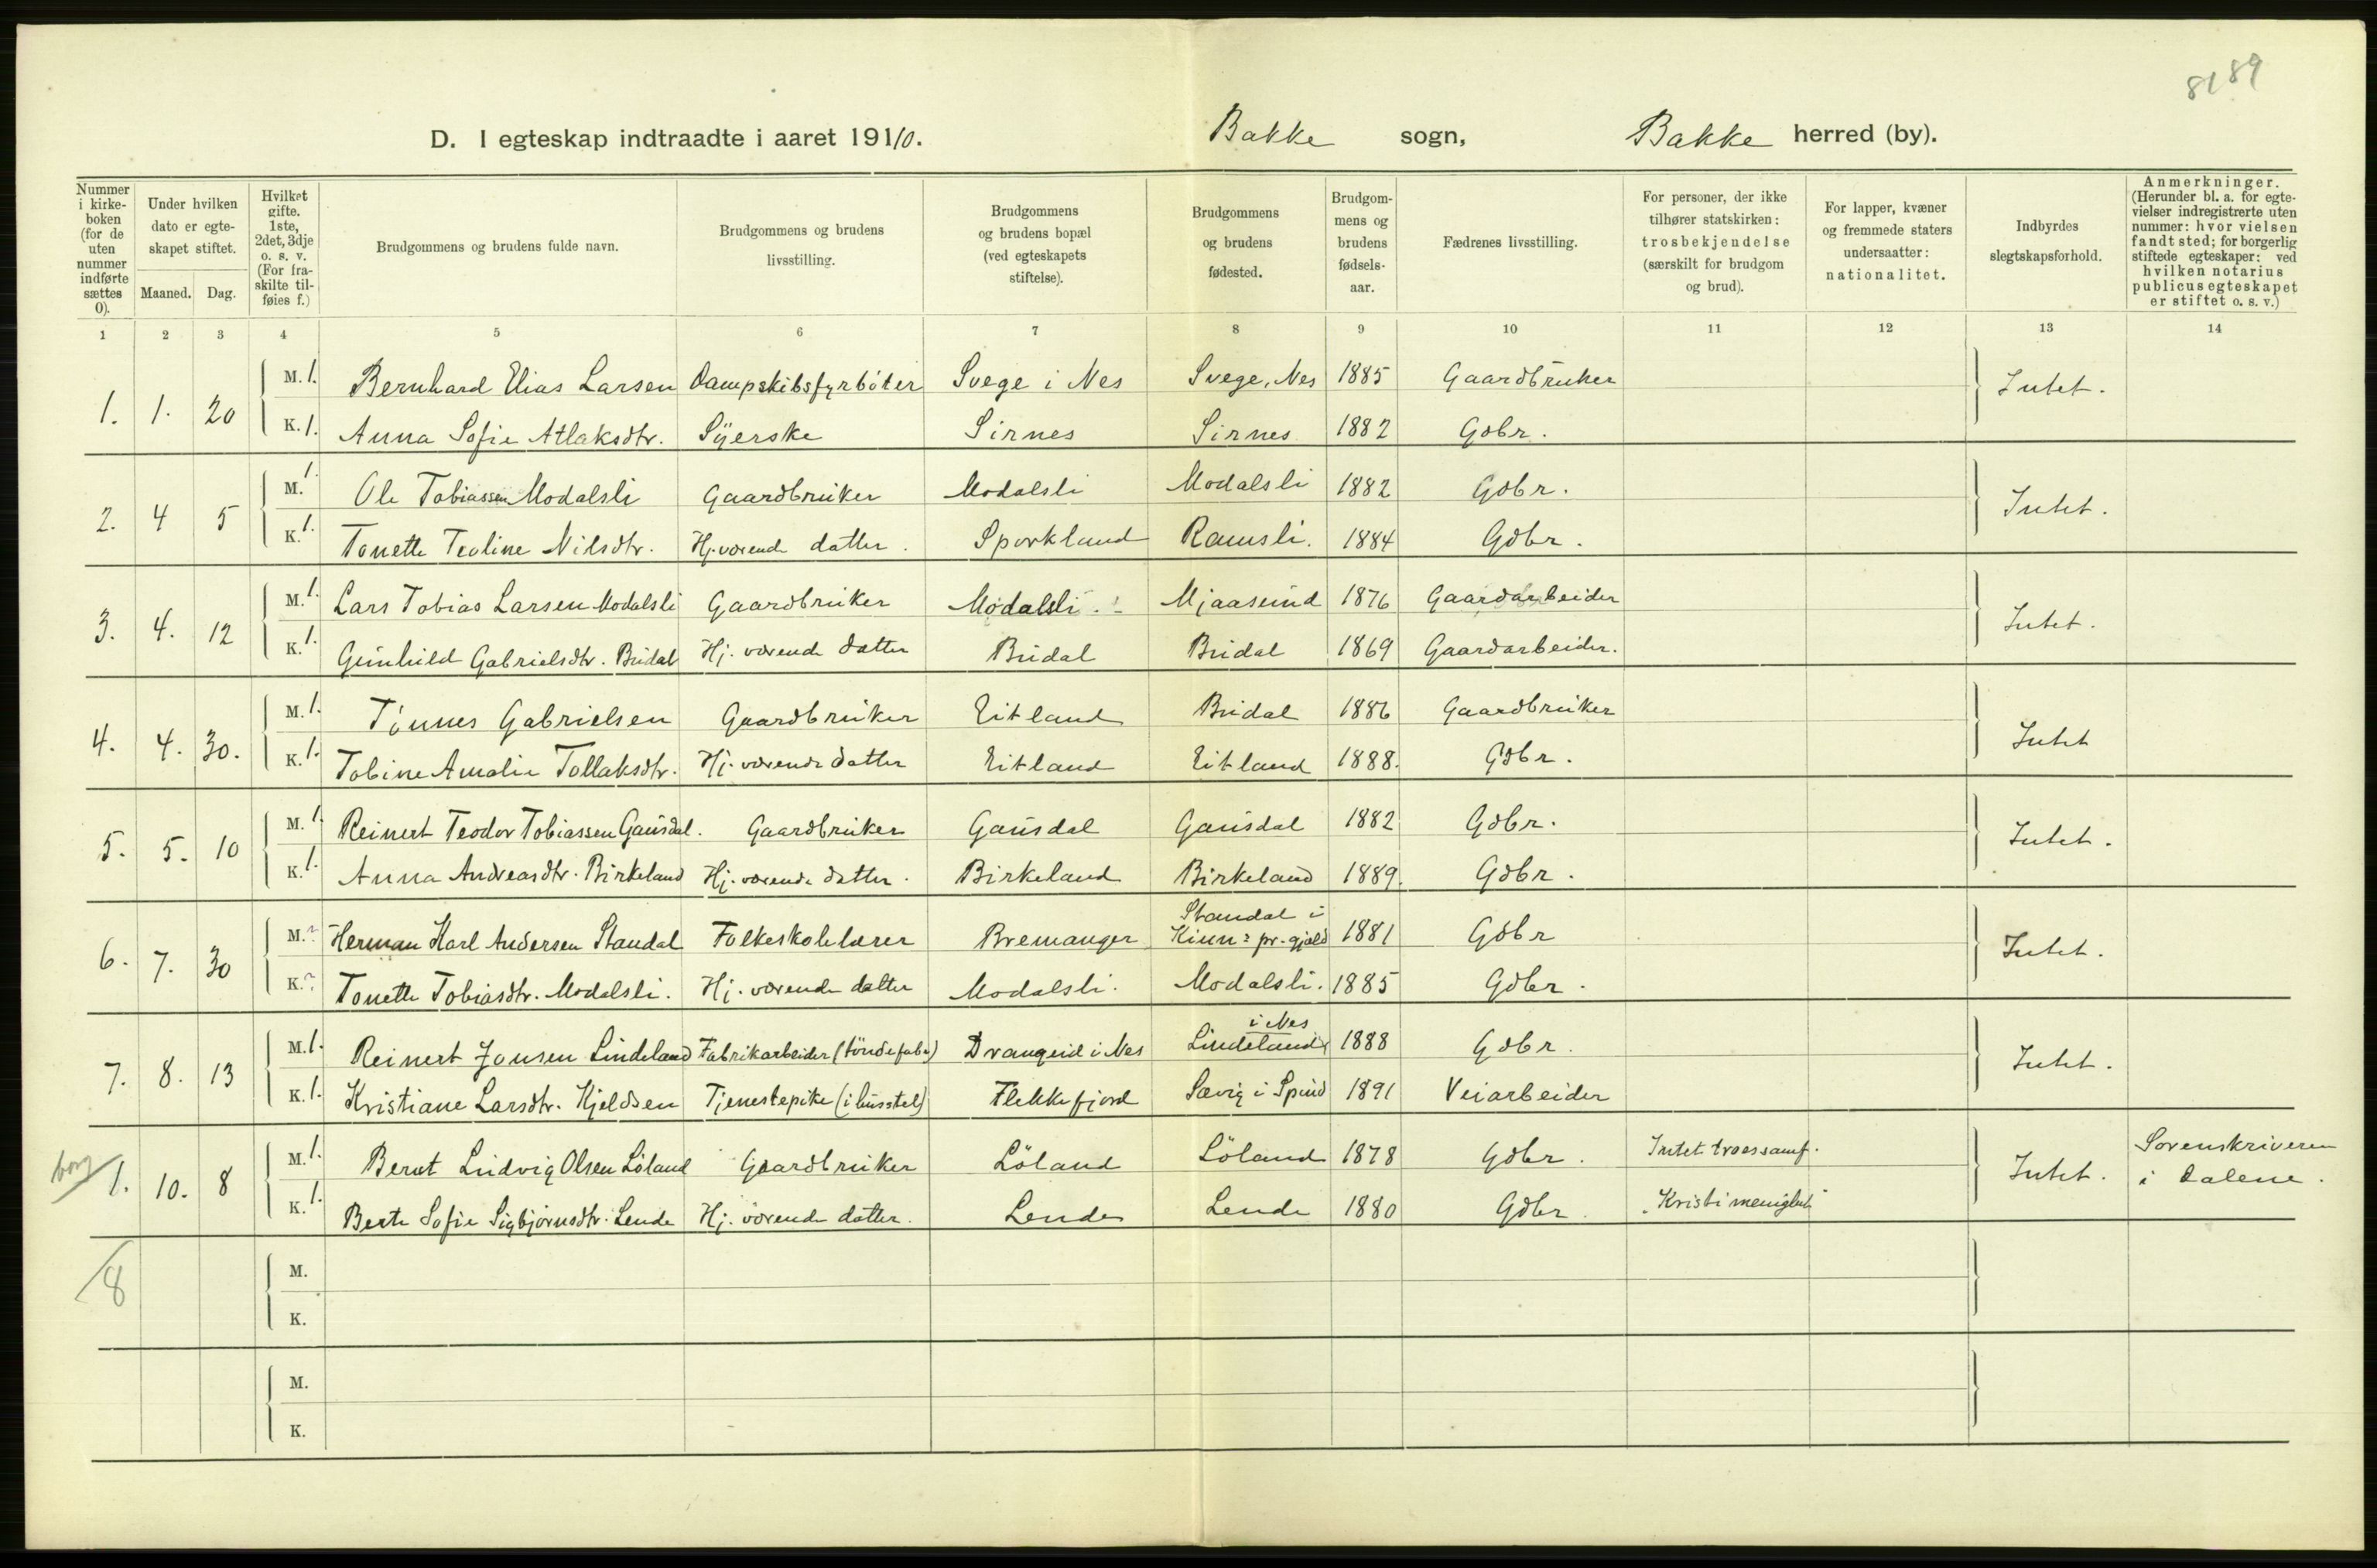 81 89
D. I egteskap indtraadte i aaret 1910. Bakke sogn, Bakke herred (by).
Nummer i kirkeboken (for de uten nummer indførte sættes 0).
Under hvilken dato er egteskapet stiftet.
Maaned. Dag.
Hvilket gifte. 1ste, 2det, 3dje o. s. v. (For fraskilte tilføies f.)
Brudgommens og brudens fulde navn.
Brudgommens og brudens livsstilling.
Brudgommens og brudens bopæl (ved egteskapets stiftelse).
Brudgommens og brudens fødested.
Brudgommens og brudens fødselsaar.
Fædrenes livsstilling.
For personer, der ikke tilhører statskirken: trosbekjendelse (særskilt for brudgom og brud).
For lapper, kvæner og fremmede staters undersaatter: nationalitet.
Indbyrdes slegtskapsforhold.
Anmerkninger. (Herunder bl. a. for egtevielser indregistrerte uten nummer: hvor vielsen fandt sted; for borgerlig stiftede egteskaper: ved hvilken notarius publicus egteskapet er stiftet o. s. v.)
1 2 3 4 5 6 7 8 9 10 11 12 13 14
1. 1. 20 M. 1. Bernhard Elias Larsen Dampskibsfyrböter Svege i Nes Svege, Nes 1885 Gaardbruker Intet.
K. 1. Anna Sofie Atlaksdtr. Syerske Sirnes Sirnes 1882 Gdbr.
2. 4 5 M. 1. Ole Tobiassen Modalsli Gaardbruker Modalsli Modalsli 1882 Gdbr. Intet.
K. 1. Tonette Teoline Nilsdtr. Hj. værende datter. Sporkland Ramsli. 1884 Gdbr.
3. 4. 12 M. 1. Lars Tobias Larsen Modalsli Gaardbruker Modalsli Mjaasund 1876 Gaardarbeider Intet.
K. 1. Gunhild Gabrielsdtr. Budal Hj. værende datter Budal Budal 1869 Gaardarbeider.
4. 4. 30. M. 1. Tönnes Gabrielsen Gaardbruker Eitland Budal 1886 Gaardbruker Intet
K. 1. Tobine Amalie Tollaksdtr. Hj. værende datter Eitland Eitland 1888. Gdbr.
5. 5. 10 M. 1. Reinert Teodor Tobiassen Gausdal. Gaardbruker Gausdal Gausdal 1882 Gdbr. Intet.
K. 1. Anna Andreasdtr. Birkeland Hj. værende datter. Birkeland Birkeland 1889. Gdbr.
6. 7. 30 M. ? Herman Karl Andersen Standal Folkeskolelærer Bremanger Standal i Kinn? pr.gjæld 1881 Gdbr Intet.
K. ? Tonette Tobiasdtr. Modalsli. Hj. værende datter Modalsli. Modalsli. 1885 Gdbr.
7. 8. 13 M. 1. Reinert Jonsen Lindeland Fabrikarbeider (töndefabr) Drangeid i Nes Lindeland i Nes 1888 Gdbr. Intet.
K. 1. Kristiane Larsdtr. Kjeldsen Tjenestepike (i husstel) Flekkefjord Sævig i Spind 1891 Veiarbeider
borg 1. 10. 8 M. 1. Berut Ludvig Olsen Löland Gaardbruker Löland Löland 1878 Gdbr. Intet troessamf. Intet. Sorenskriveren i Dalene.
K. 1. Berte Sofie Sigbjørnsdtr. Lende Hj. værende datter. Lende Lende 1880 Gdbr. "Kristi menighet"
8 M.
K.
M.
K.